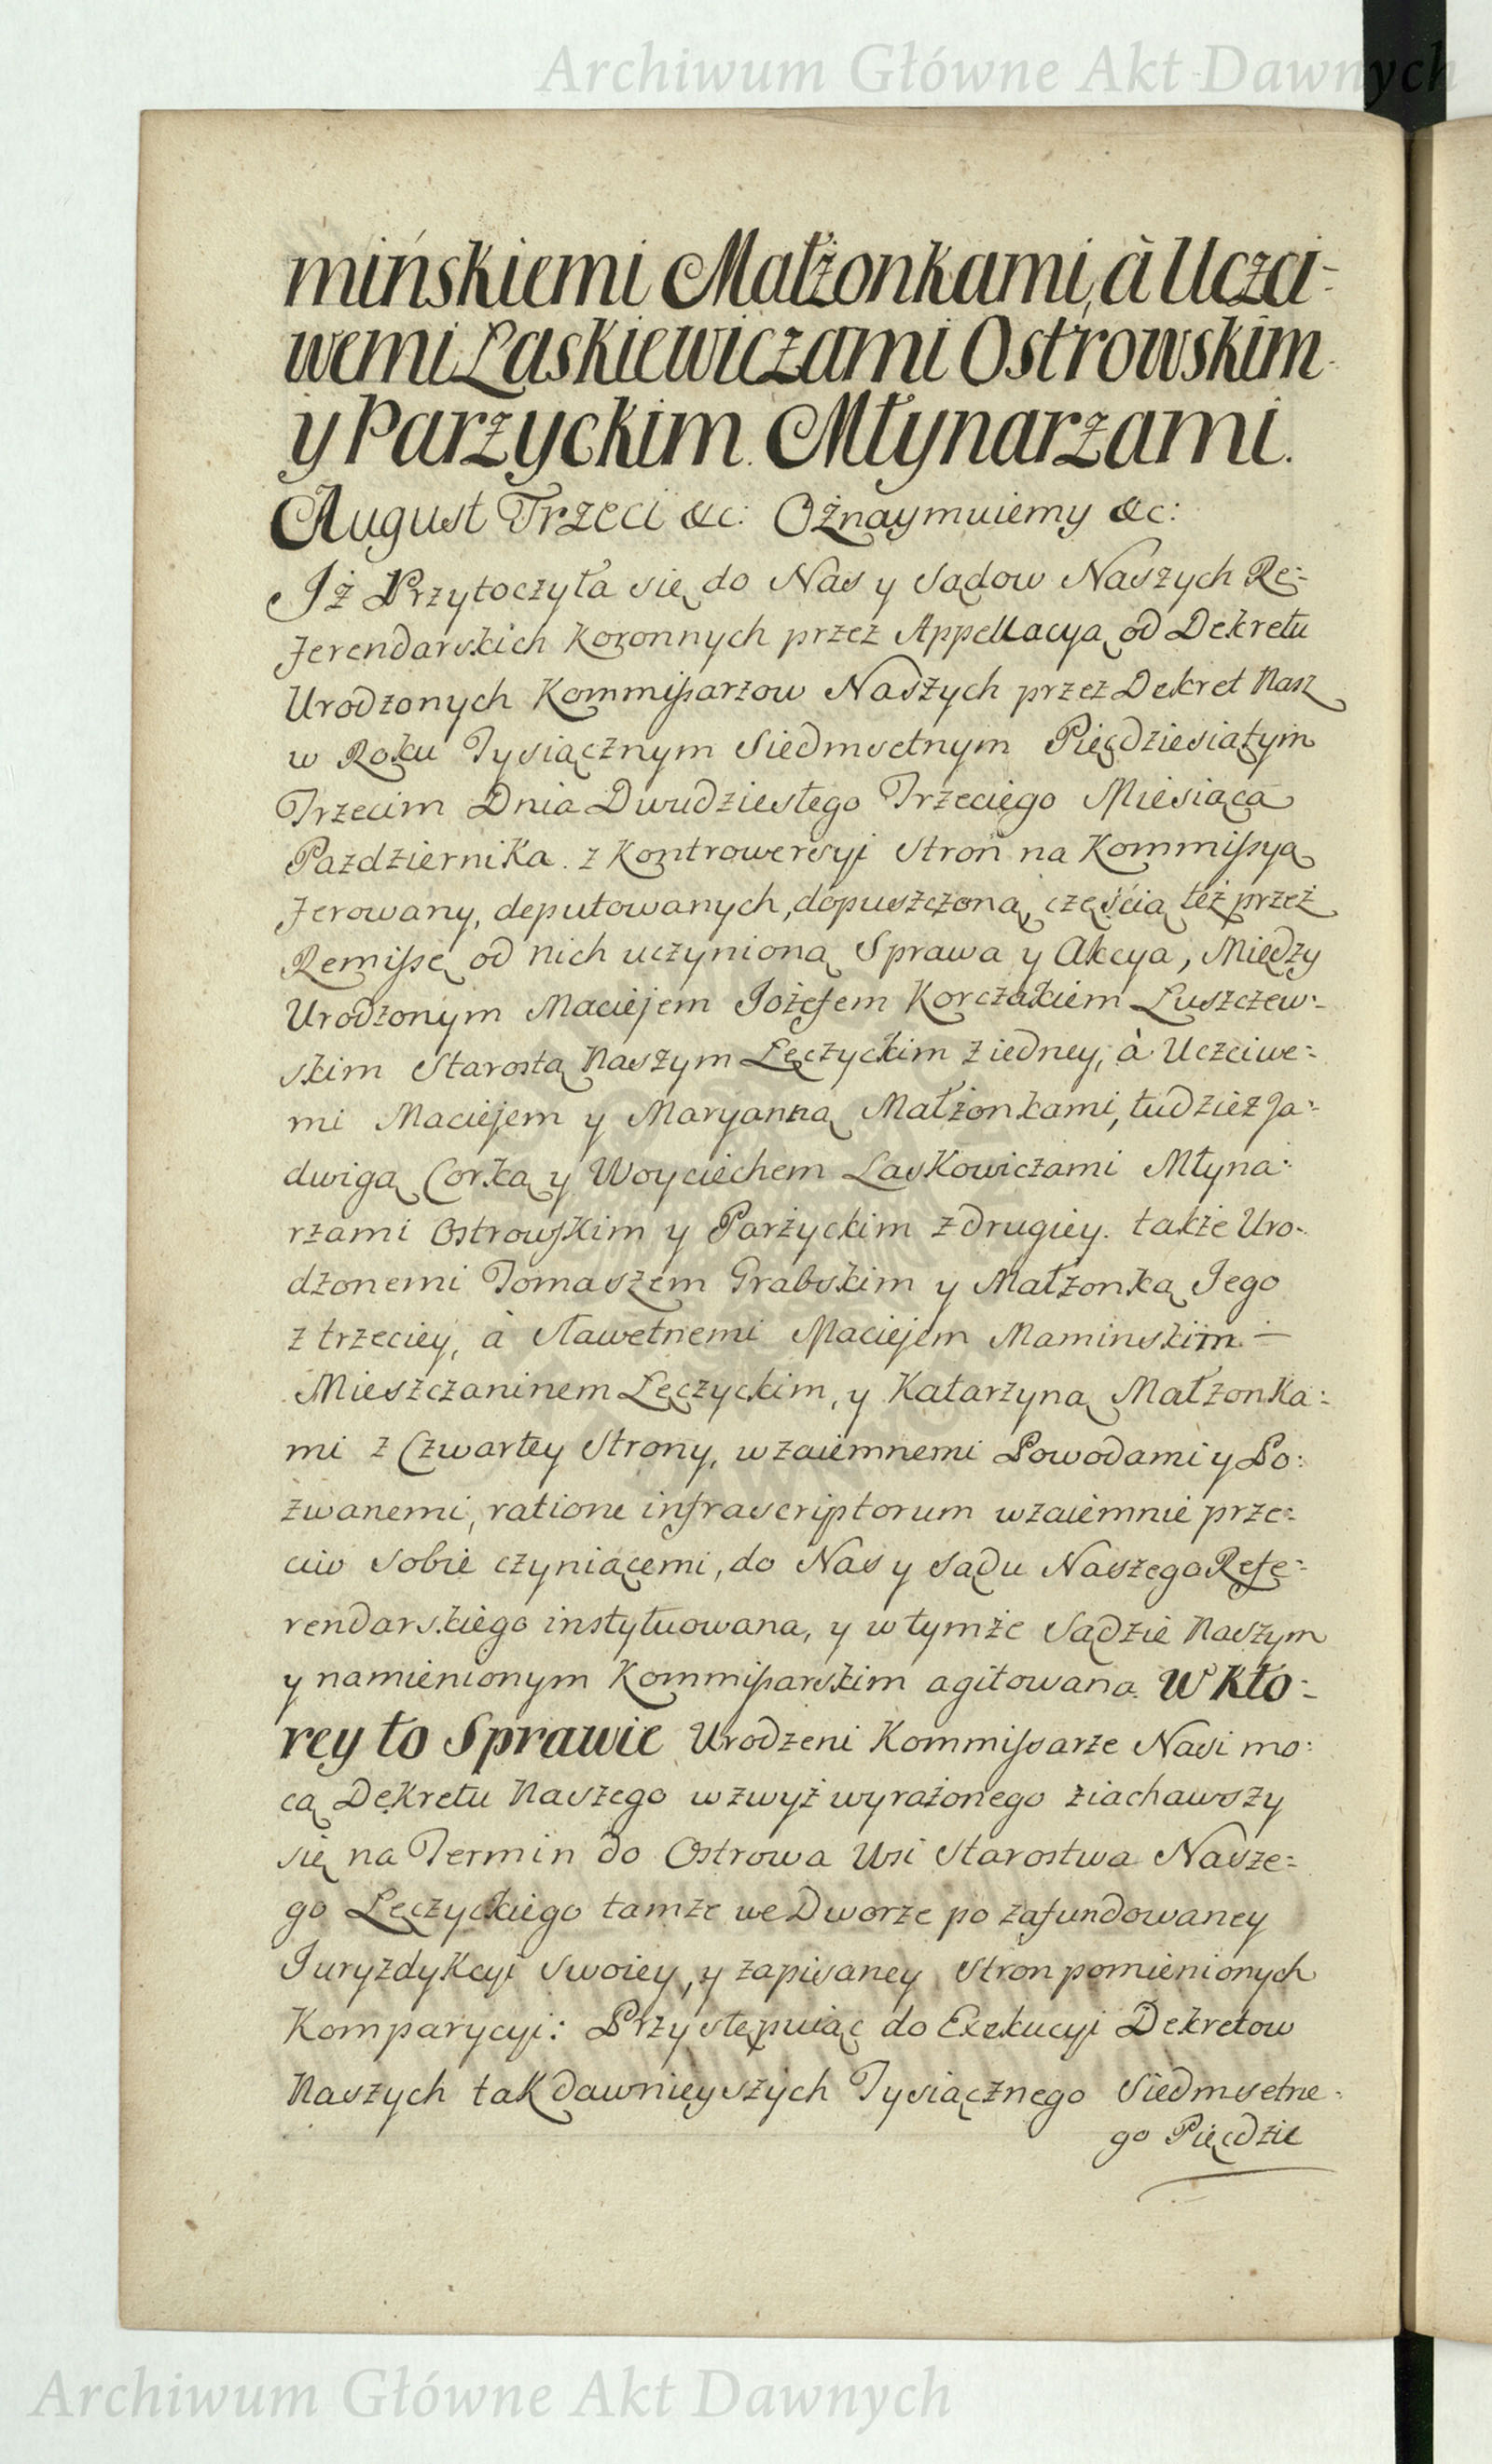 Archiwum Główne Akt Dawnych
mińskiemi Małżonkami, à Uczci-
wemi Laskiewiczami Ostrowskim
y Parzyckim Młynarzami.
August Trzeci &c: Ożnaymuiemy &c:
Iż Przytoczyła się do Nas y Sądow Naszych Re=
ferendarskich Koronnych przez Appellacyą od Dekretu
Urodzonych Kommissarzow Naszych przez Dekret Nasz
w Roku Tysiącznym Siedmsetnym Pięćdziesiątym
Trzecim Dnia Dwudziestego Trzeciego Miesiąca
Pazdziernika z Kontrowersyi Stron na Kommissyą
ferowany, deputowanych, dopuszczoną, częścią też przez
Remissę od nich uczynioną Sprawa y Akcya, Między
Urodzonym Maciejem Iożefem Korczakiem Luszczew=
skim Starostą Naszym Łęczyckim z iedney, à Uczciwe=
mi Maciejem y Maryanną Małżonkami, tudzież Ja=
dwigą Corką y Woyciechem Laskowiczami Młyna=
rzami Ostrowskim y Parżyckim z drugiey. także Uro=
dzonemi Tomaszem Grabskim y Małżonką Iego
z trzeciey, à Sławetnemi Maciejem Maminskim
Mieszczaninem Łęczyckim, y Katarzyną Małżonka=
mi z Czwartey Strony, wzaiemnemi Powodami y Po=
zwanemi, ratione infrascriptorum wzaiemnie prze=
ciw Sobie czyniącemi, do Nas y Sądu Naszego Refe=
rendarskiego instytuowana, y w tymże Sądzie Naszym
y namienionym Kommissarskim agitowana. W Kto=
rey to Sprawie Urodzeni Kommissarze Nasi mo=
cą Dekretu Naszego wzwyż wyrażonego ziachawszy
się na Termin do Ostrowa Wsi Starostwa Nasze=
go Łęczyckiego tamże we Dworze po zafundowaney
Iuryzdykcyi Swoiey, y zapisaney Stron pomienionych
Komparycyi: Przystępuiąc do Exekucyi Dekretow
Naszych tak dawnieyszych Tysiącznego Siedmsetne=
go Pięćdzie
Archiwum Główne Akt Dawnych